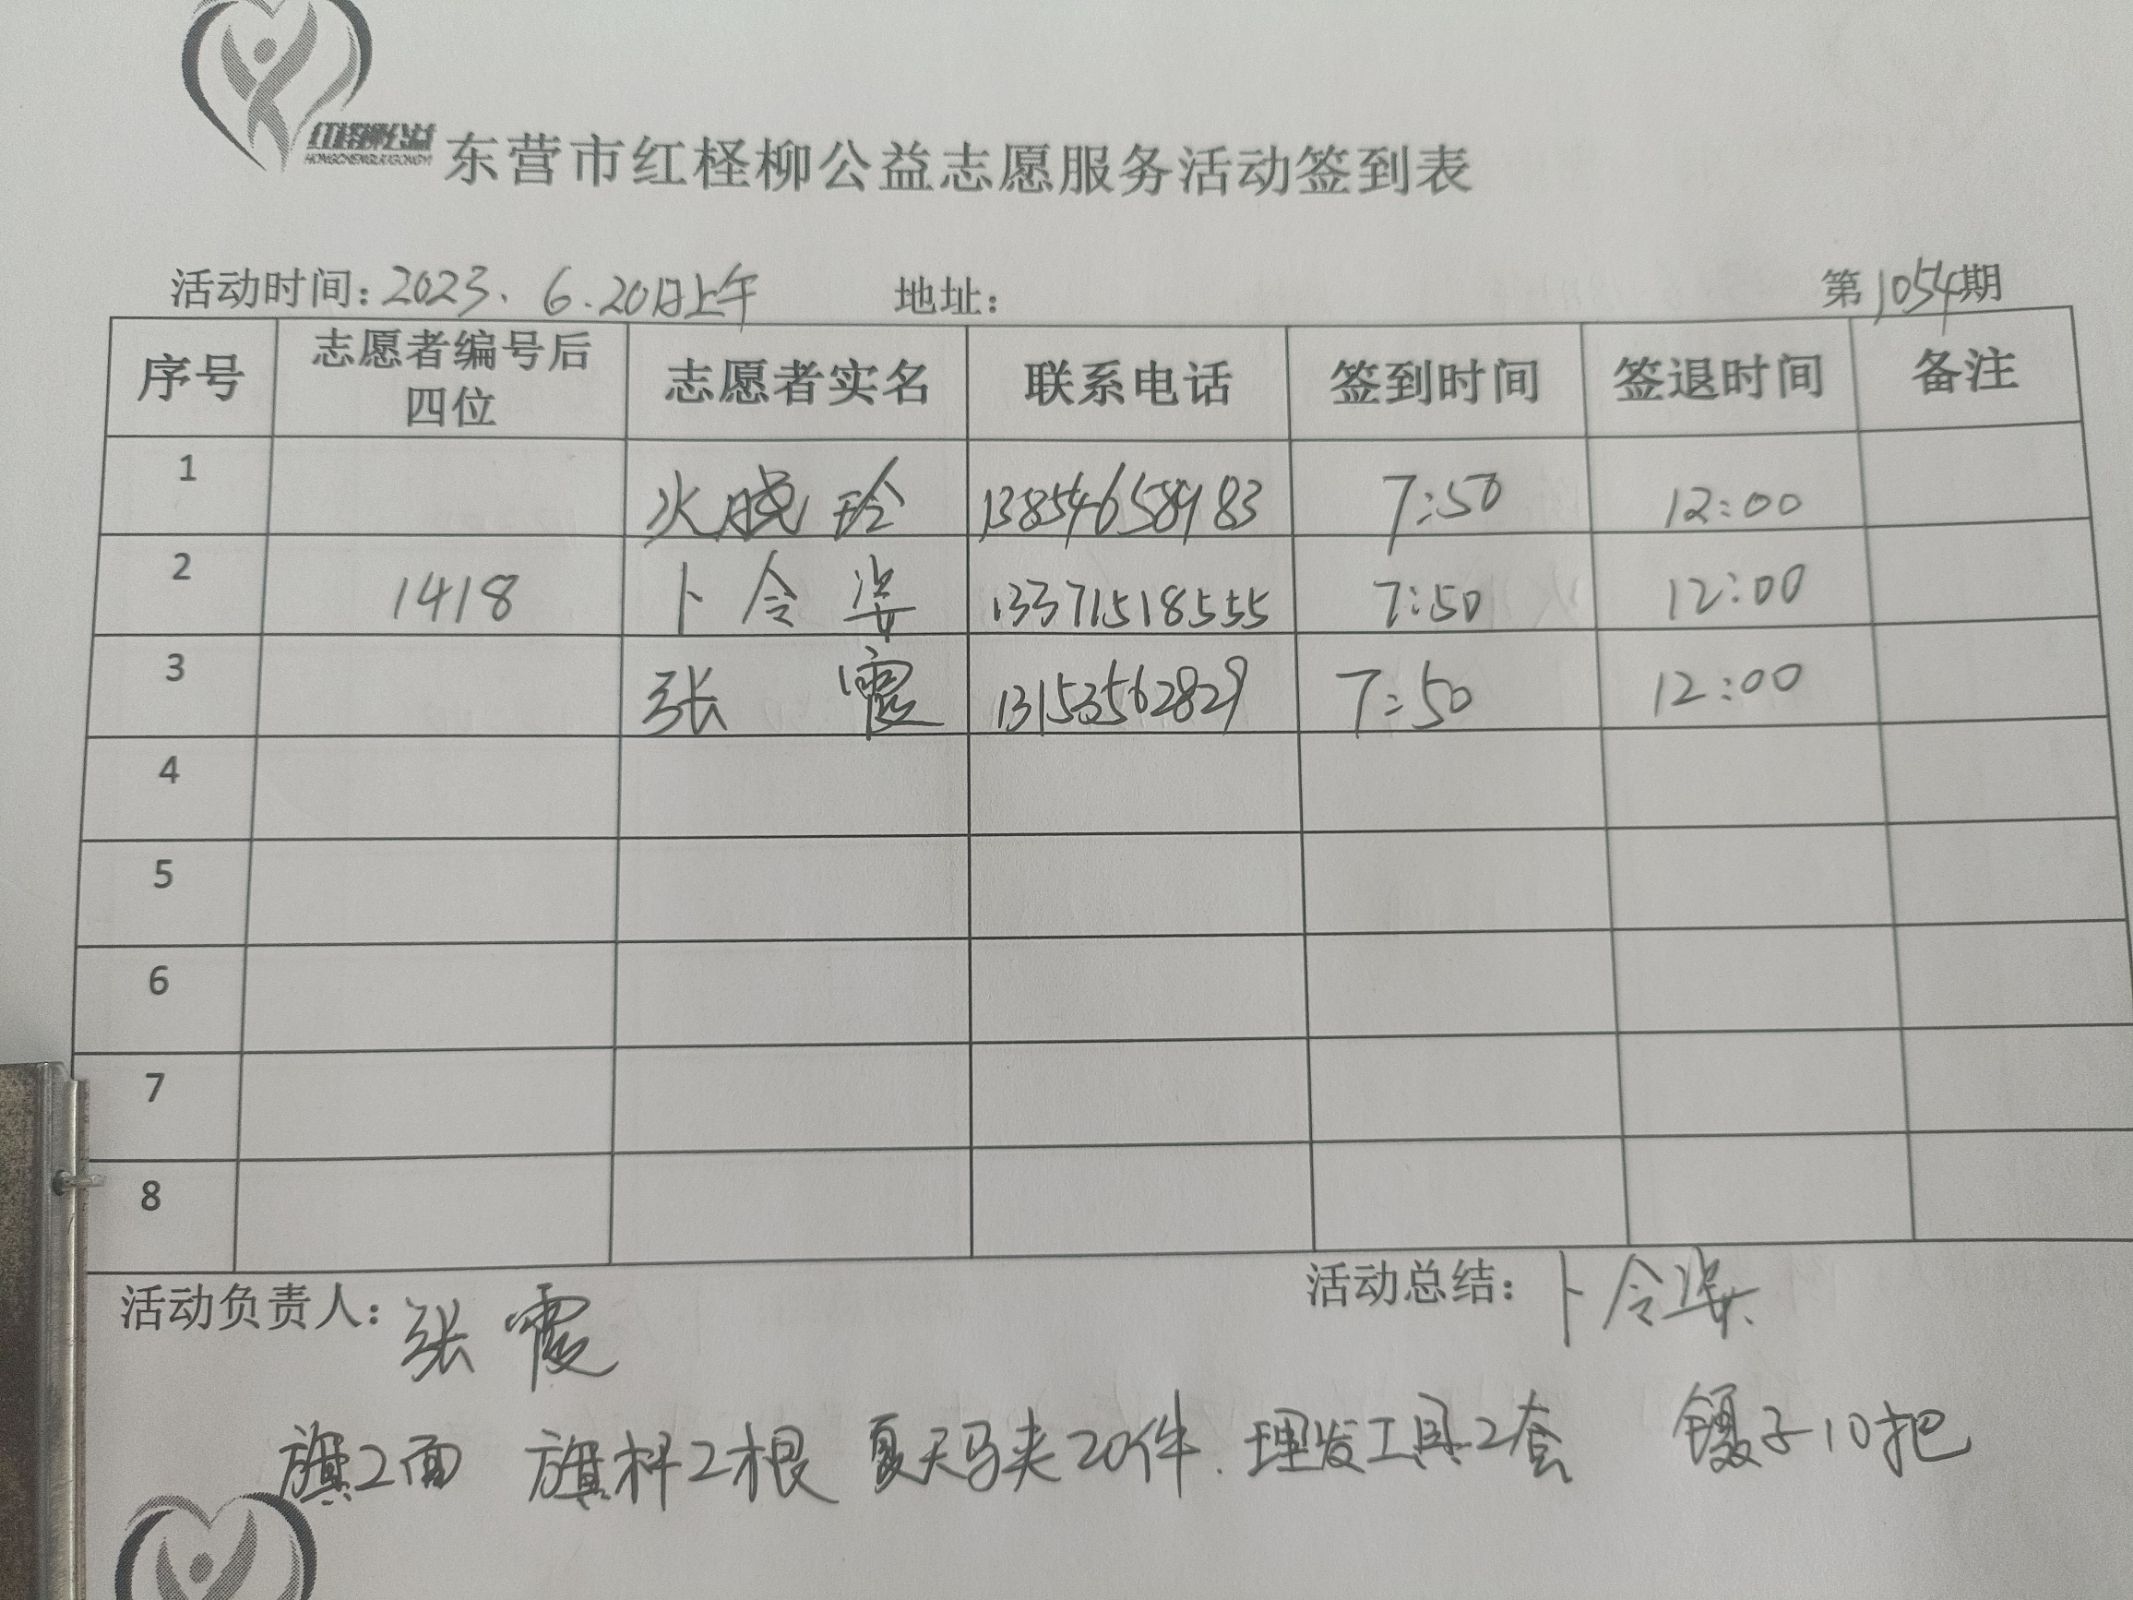 红柽柳公益
HONGCHENGLIUGONGYI
东营市红柽柳公益志愿服务活动签到表
活动时间：2023.6.20日上午 地址： 第1054期
序号 志愿者编号后四位 志愿者实名 联系电话 签到时间 签退时间 备注
1 晓玲 13854658983 7:50 12:00
2 1418 卜令姿 13371518555 7:50 12:00
3 张霞 13153562829 7:50 12:00
4
5
6
7
8
活动负责人：张霞 活动总结：卜令姿
旗2面 旗杆2根 夏天马夹20件. 理发工具2套 镊子10把